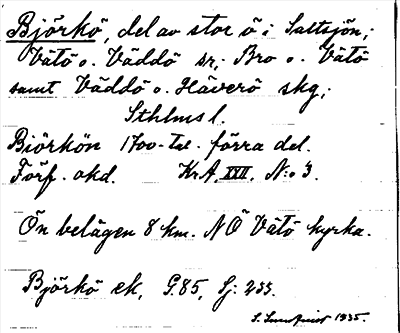 Björkö, del av stor ö i Saltsjön,
Vätö o. Väddö sr; Bro o. Vätö
samt Väddö o. Häverö skg;
Sthlms l.
Björkön 1700-tal. förra del.
Förf. okd. Kr.A. XXII. N:o 3.
Ön belägen 8 km. NÖ Vätö kyrka.
Björkö ek, G.85, Sj: 233.
S. Lundquist 1935.